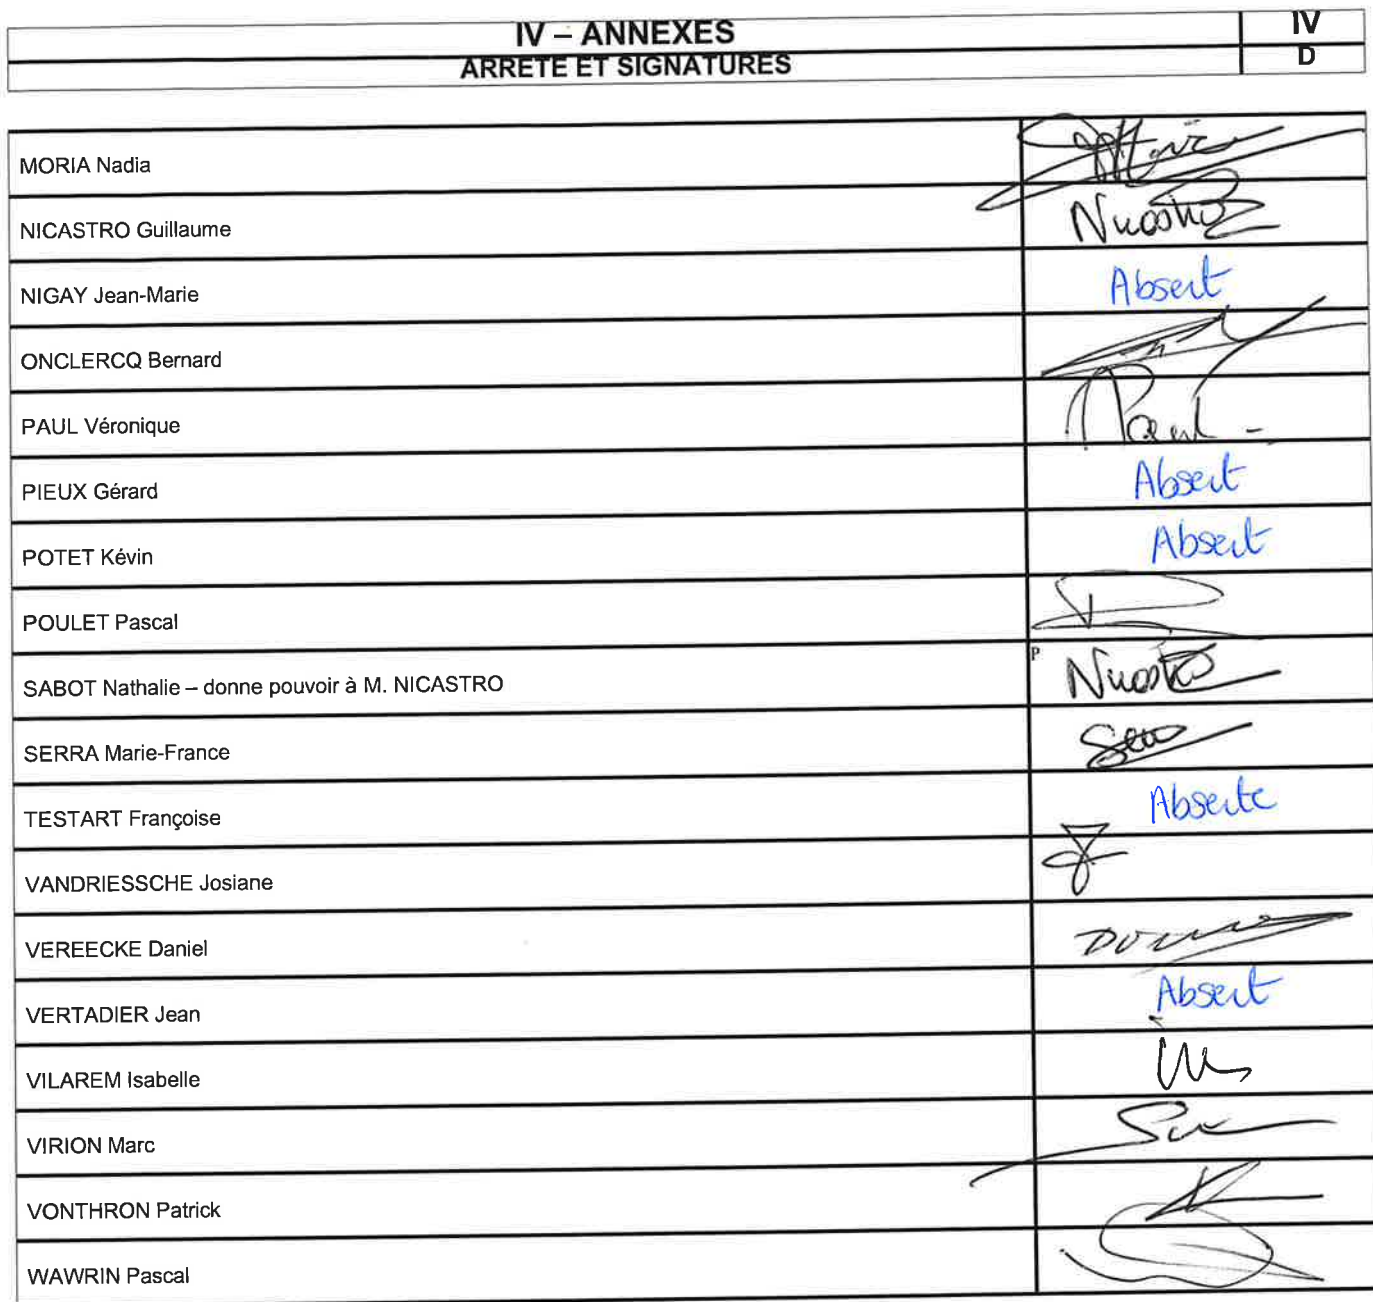 IV – ANNEXES
IV
ARRETE ET SIGNATURES
D
MORIA Nadia
NICASTRO Guillaume
Nicastro
NIGAY Jean-Marie
Absent
ONCLERCQ Bernard
PAUL Véronique
Paul
PIEUX Gérard
Absent
POTET Kévin
Absent
POULET Pascal
SABOT Nathalie – donne pouvoir à M. NICASTRO
P
Nicastro
SERRA Marie-France
TESTART Françoise
Absente
VANDRIESSCHE Josiane
VEREECKE Daniel
VERTADIER Jean
Absent
VILAREM Isabelle
VIRION Marc
VONTHRON Patrick
WAWRIN Pascal